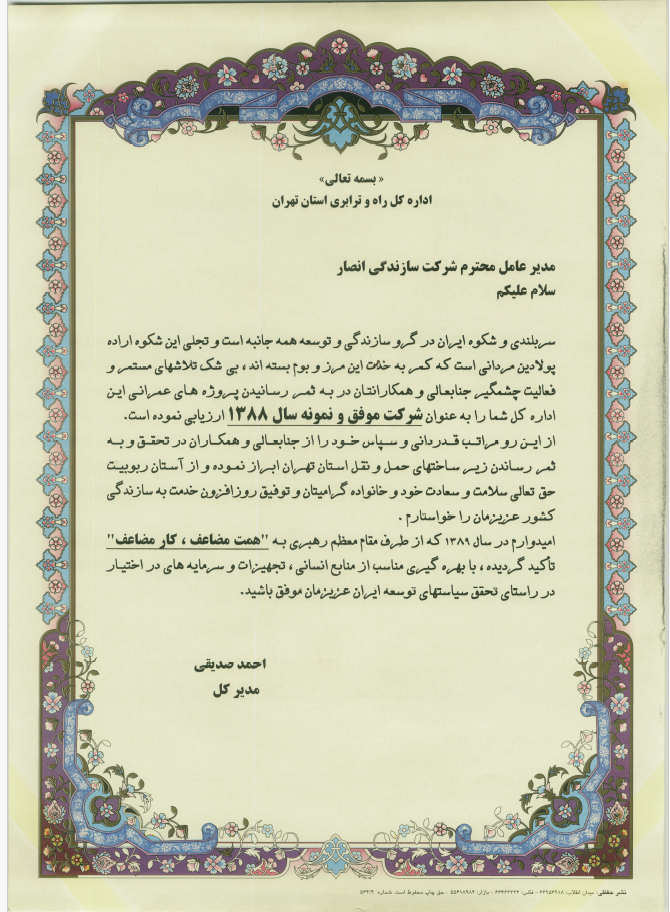 « بسمه تعالی»
اداره کل راه و ترابری استان تهران
مدیر عامل محترم شرکت سازندگی انصار
سلام علیکم
سربلندی و شکوه ایران در گرو سازندگی و توسعه همه جانبه است و تجلی این شکوه اراده
پولادین مردانی است که کمر به خدمت این مرز و بوم بسته اند ، بی شک تلاشهای مستمر و
فعالیت چشمگیر جنابعالی و همکارانتان در به ثمر رسانیدن پروژه های عمرانی این
اداره کل شما را به عنوان شرکت موفق و نمونه سال ۱۳۸۸ ارزیابی نموده است.
از این رو مراتب قدردانی و سپاس خود را از جنابعالی و همکاران در تحقق و به
ثمر رساندن زیر ساختهای حمل و نقل استان تهران ابراز نموده و از آستان ربوبیت
حق تعالی سلامت و سعادت خود و خانواده گرامیتان و توفیق روزافزون خدمت به سازندگی
کشور عزیزمان را خواستارم .
امیدوارم در سال ۱۳۸۹ که از طرف مقام معظم رهبری به "همت مضاعف ، کار مضاعف"
تأکید گردیده ، با بهره گیری مناسب از منابع انسانی ، تجهیزات و سرمایه های در اختیار
در راستای تحقق سیاستهای توسعه ایران عزیزمان موفق باشید.
احمد صدیقی
مدیر کل
نشر حققی: میدان انقلاب: ۶۶۹۵۶۹۱۸ - فکس: ۶۶۴۶۲۲۲۲ - بازار: ۵۵۶۱۸۹۸۴ . حق چاپ محفوظ است. شماره ۵۶۴/۴